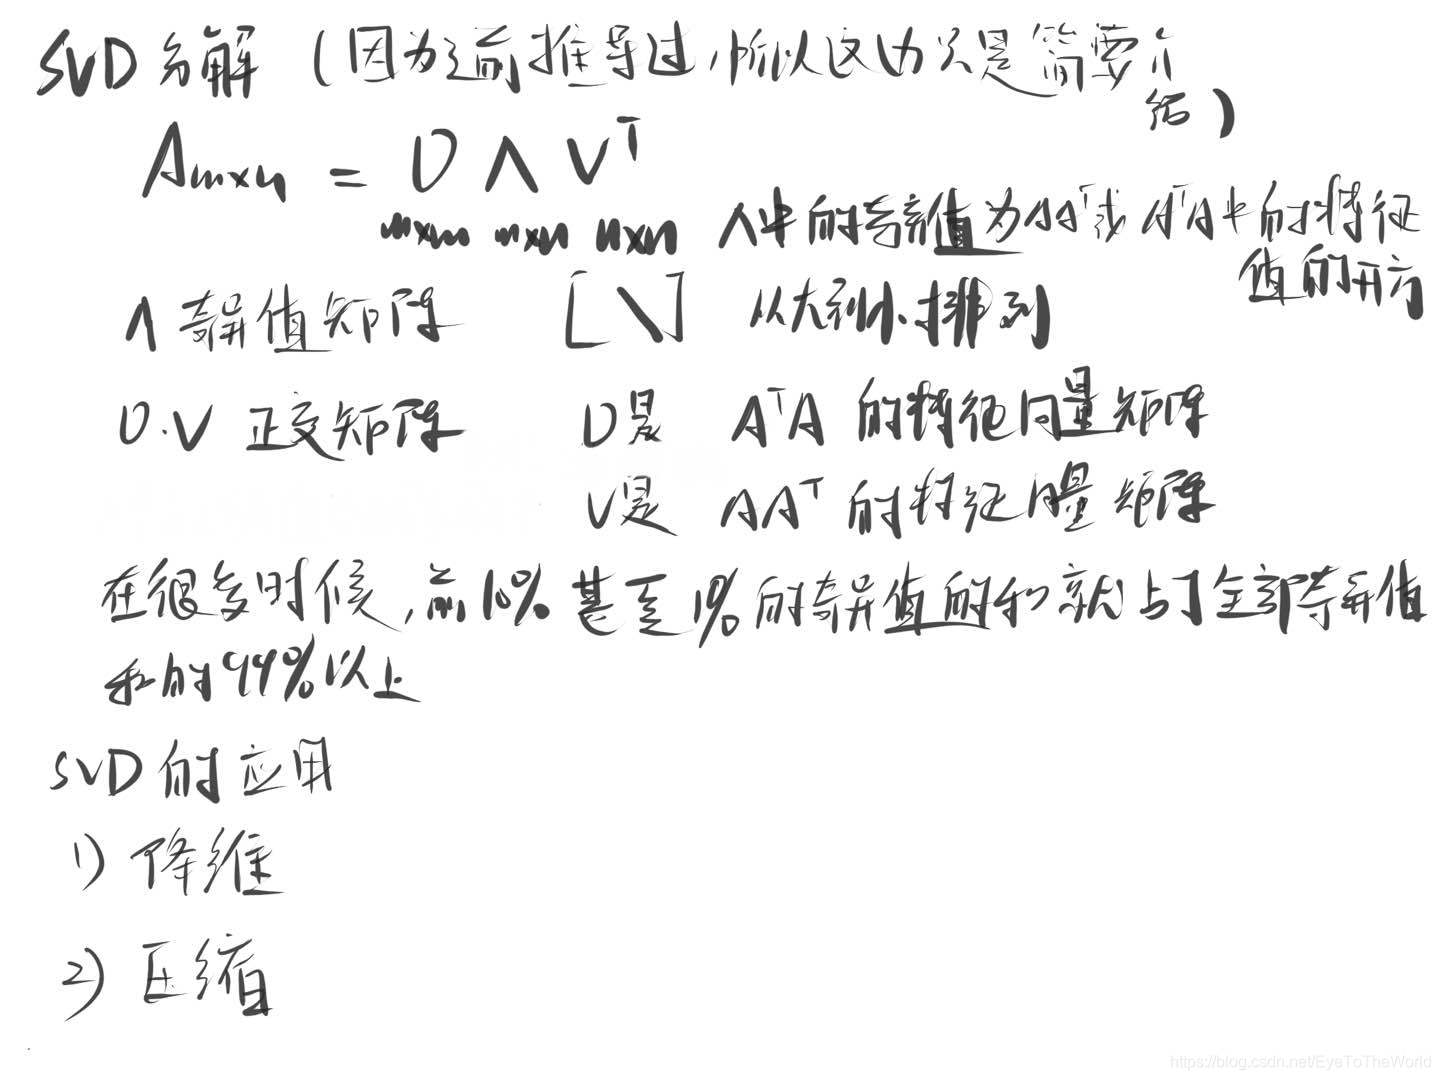 SVD分解（因为之前推导过，所以这边只是简要介
绍）
Am×n = U Λ V^T
m×m m×n n×n Λ中的奇异值为AA^T或A^TA中的特征
值的开方
Λ 奇异值矩阵 [\] 从大到小排列
U.V 正交矩阵 U是 A^TA 的特征向量矩阵
V是 AA^T 的特征向量矩阵
在很多时候，前10%甚至1%的奇异值的和就占了全部奇异值
和的99%以上
SVD的应用
1) 降维
2) 压缩
https://blog.csdn.net/EyeToTheWorld